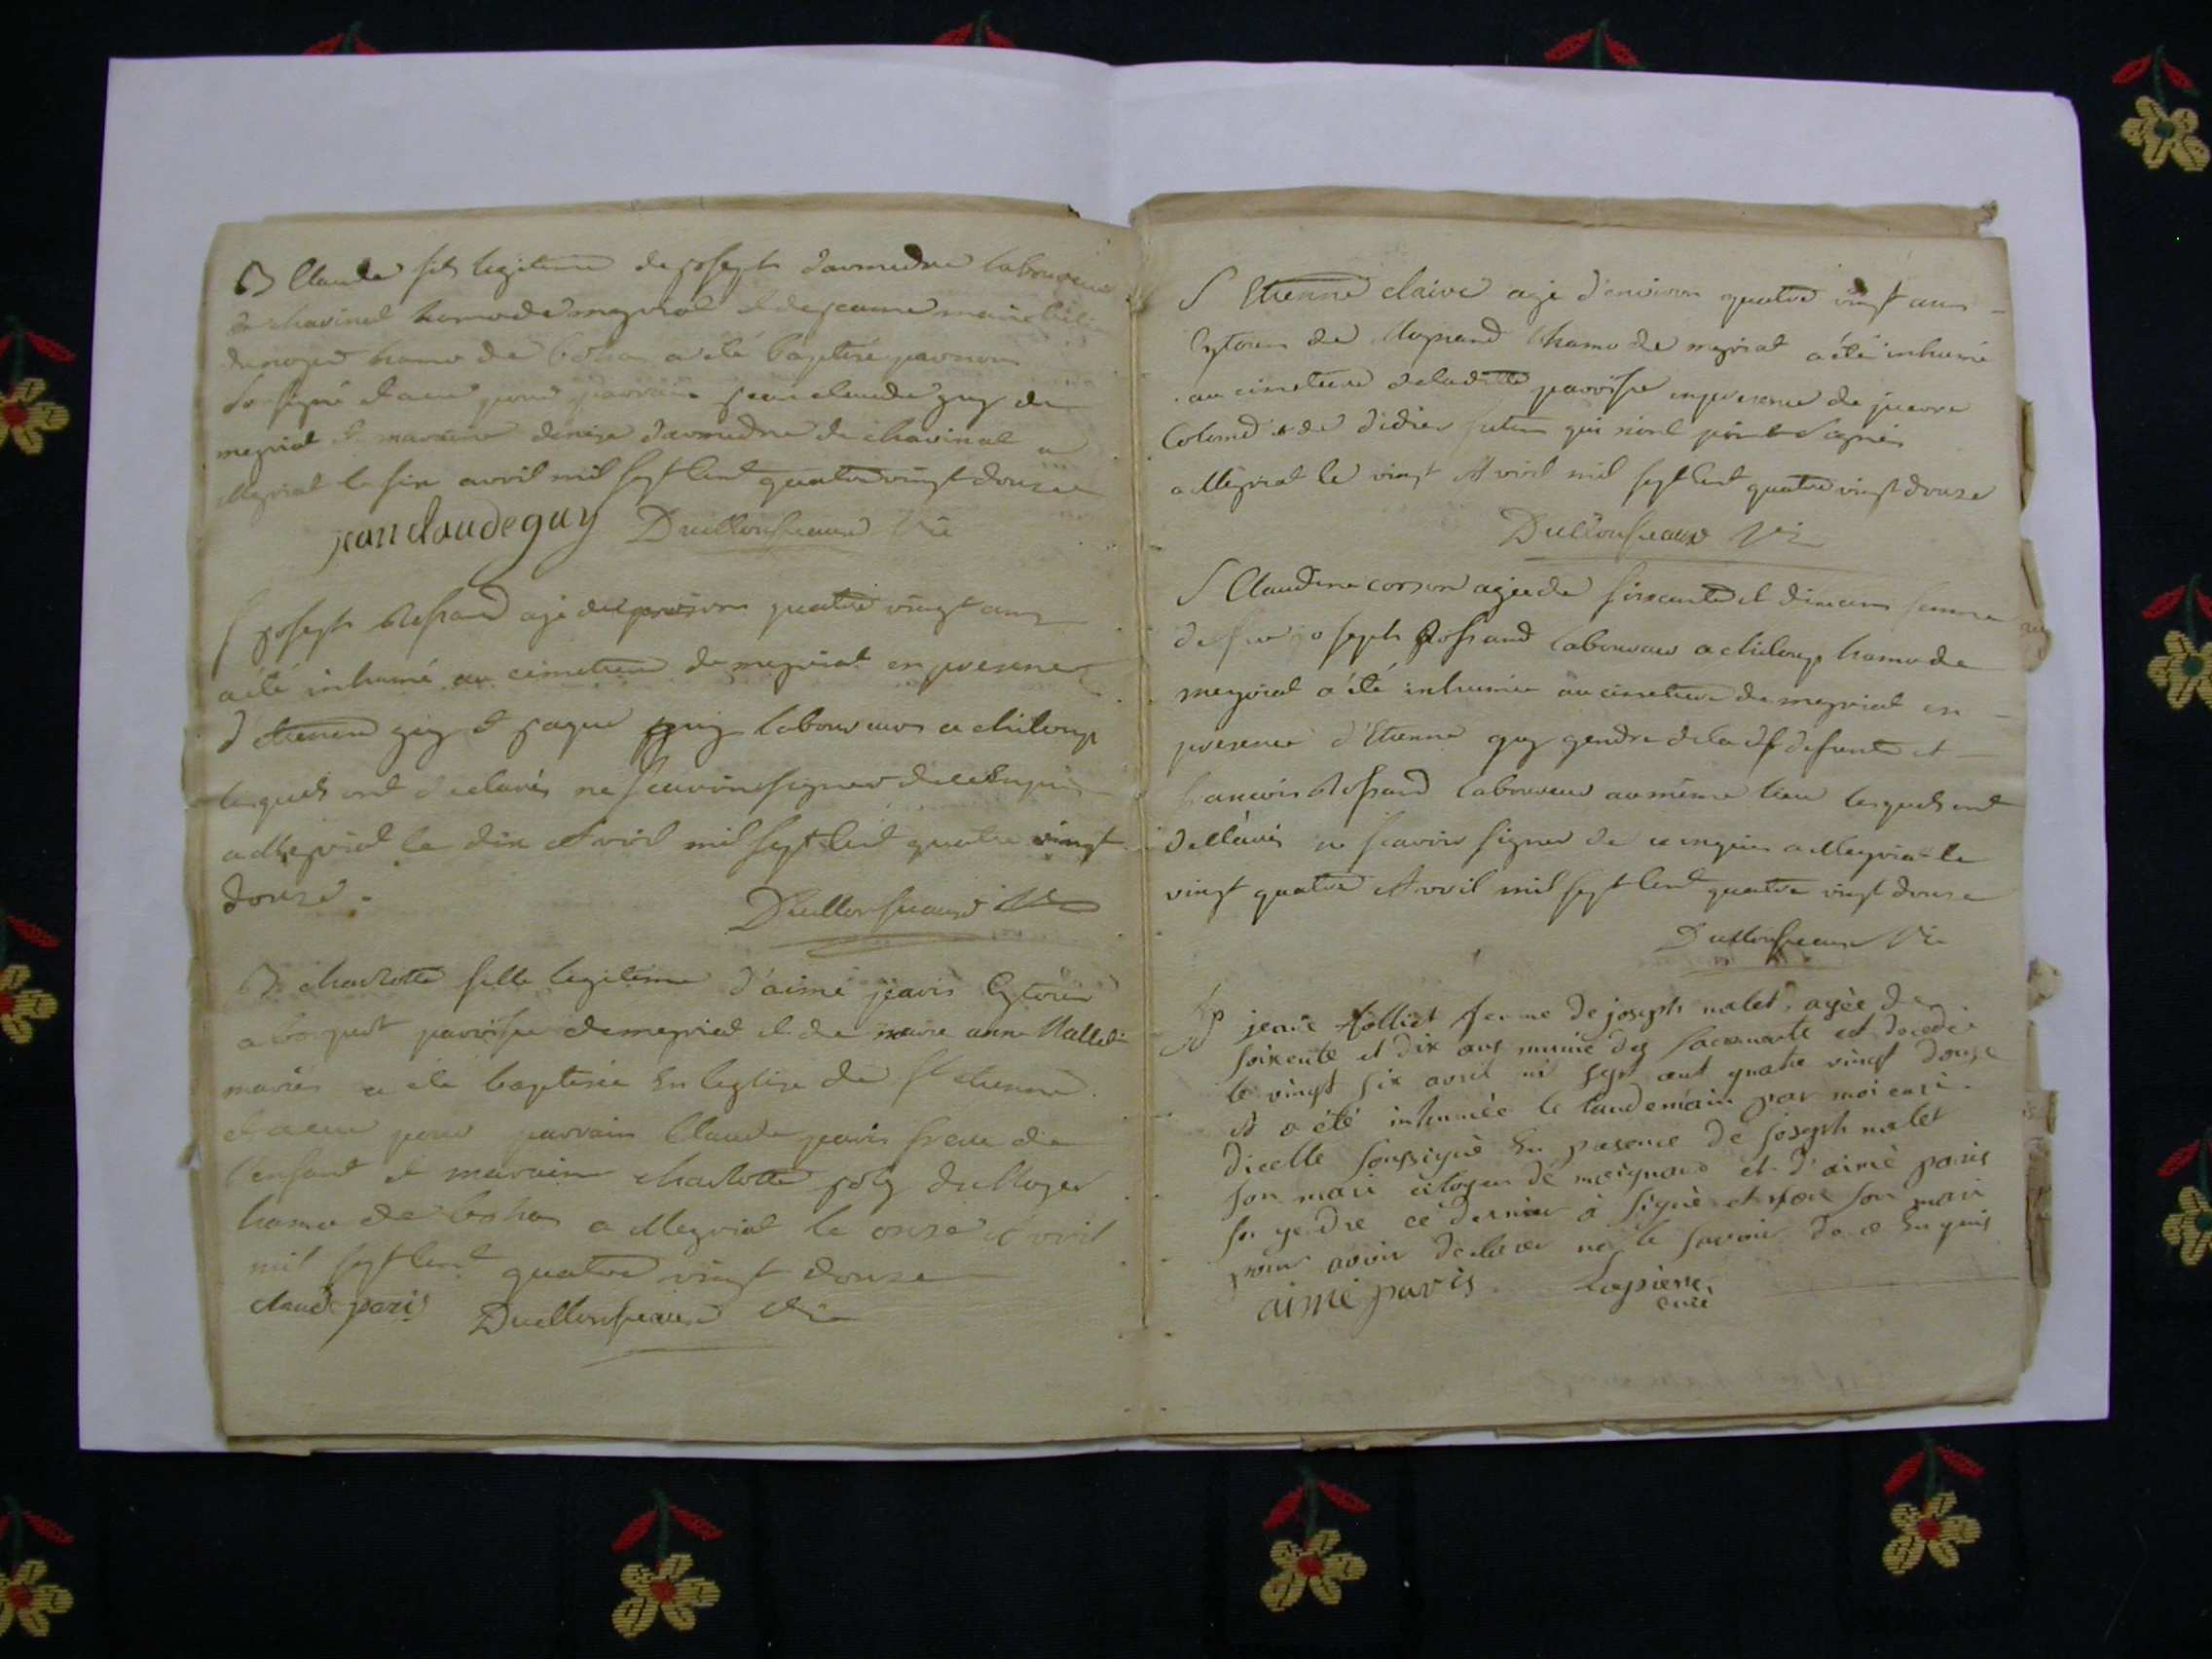 B Claude fils legitime de joseph darmedru laboureur
de chavinal hamo de meyriat et de jeanne marie
du noyer hamo de bohas a été baptisé par nous
soussigné et a eu pour parrain jean claude guy de
meyriat et marraine denise darmedru de chavinal a
Meyriat le six avril mil sept cent quatre vingt douze
jean claude guy Duclloseaux Vic
S joseph agé d'environ quatre vingt ans
a été inhumé au cimetiere de meyriat en presence
d'etienne guy et jaque guy laboureurs a chiloup
lesquels ont declarés ne scavoir signer de ce enquis
a Meyriat le dix Avril mil sept cent quatre vingt
douze.
Vic
B charlotte fille legitime d'aimé paris Cytoien
a paroisse de meyriat et de marie anne Mallet
mariés a été baptisée en leglise de st etienne
et a eu pour parrain Claude paris frere de
l'enfant et marraine charlotte joly du Noyer
hamo de bohas a Meyriat le onze Avril
mil sept cent quatre vingt douze
claude paris Vic
S Etienne claire agé d'environ quatre vingt ans
Cytoien de hamo de meyriat a été inhumé
au cimetiere de la ditte paroisse en presence de pierre
Colomb et de didier qui n'ont point signés
a Meyriat le vingt Avril mil sept cent quatre vingt douze
Vic
S Claudine corson agée de soixante et dix ans femme
de feu joseph laboureur a chiloup hamo de
meyriat a été inhumée au cimetiere de meyriat en
presence d'Etienne guy gendre de la de defunte et
francois laboureur au même lieu lesquels ont
declarés ne scavoir signer de ce enquis a Meyriat le
vingt quatre Avril mil sept cent quatre vingt douze
Vic
jenne femme de joseph malet agée de
soixente et dix ans munie des sacremants est decedée
le vingt six avril mi sept cent quatre vingt douze
et a été inhumée le landemain par moi curé
dicelle soussigné En presence de joseph malet
son mari citoyen de meignand et d'aimé paris
son gendre ce dernier à signé et non son mari
pour avoir declaré ne le savoir de ce Enquis
aimé paris Lapierre,
curé